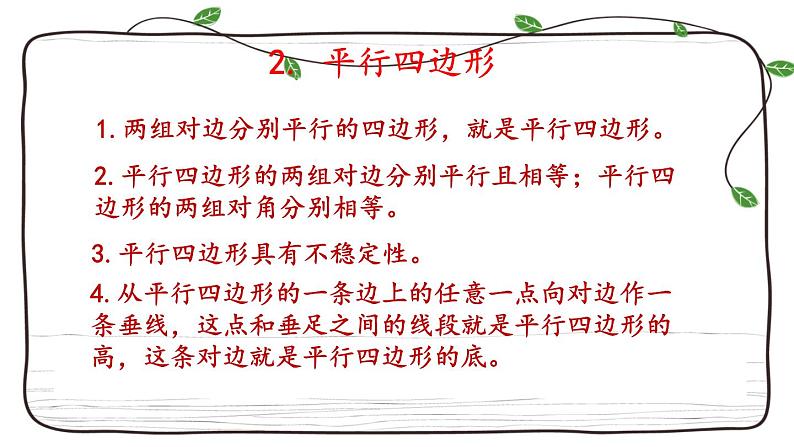 2. 平行四边形
1.两组对边分别平行的四边形，就是平行四边形。
2.平行四边形的两组对边分别平行且相等；平行四
边形的两组对角分别相等。
3.平行四边形具有不稳定性。
4.从平行四边形的一条边上的任意一点向对边作一
条垂线，这点和垂足之间的线段就是平行四边形的
高，这条对边就是平行四边形的底。